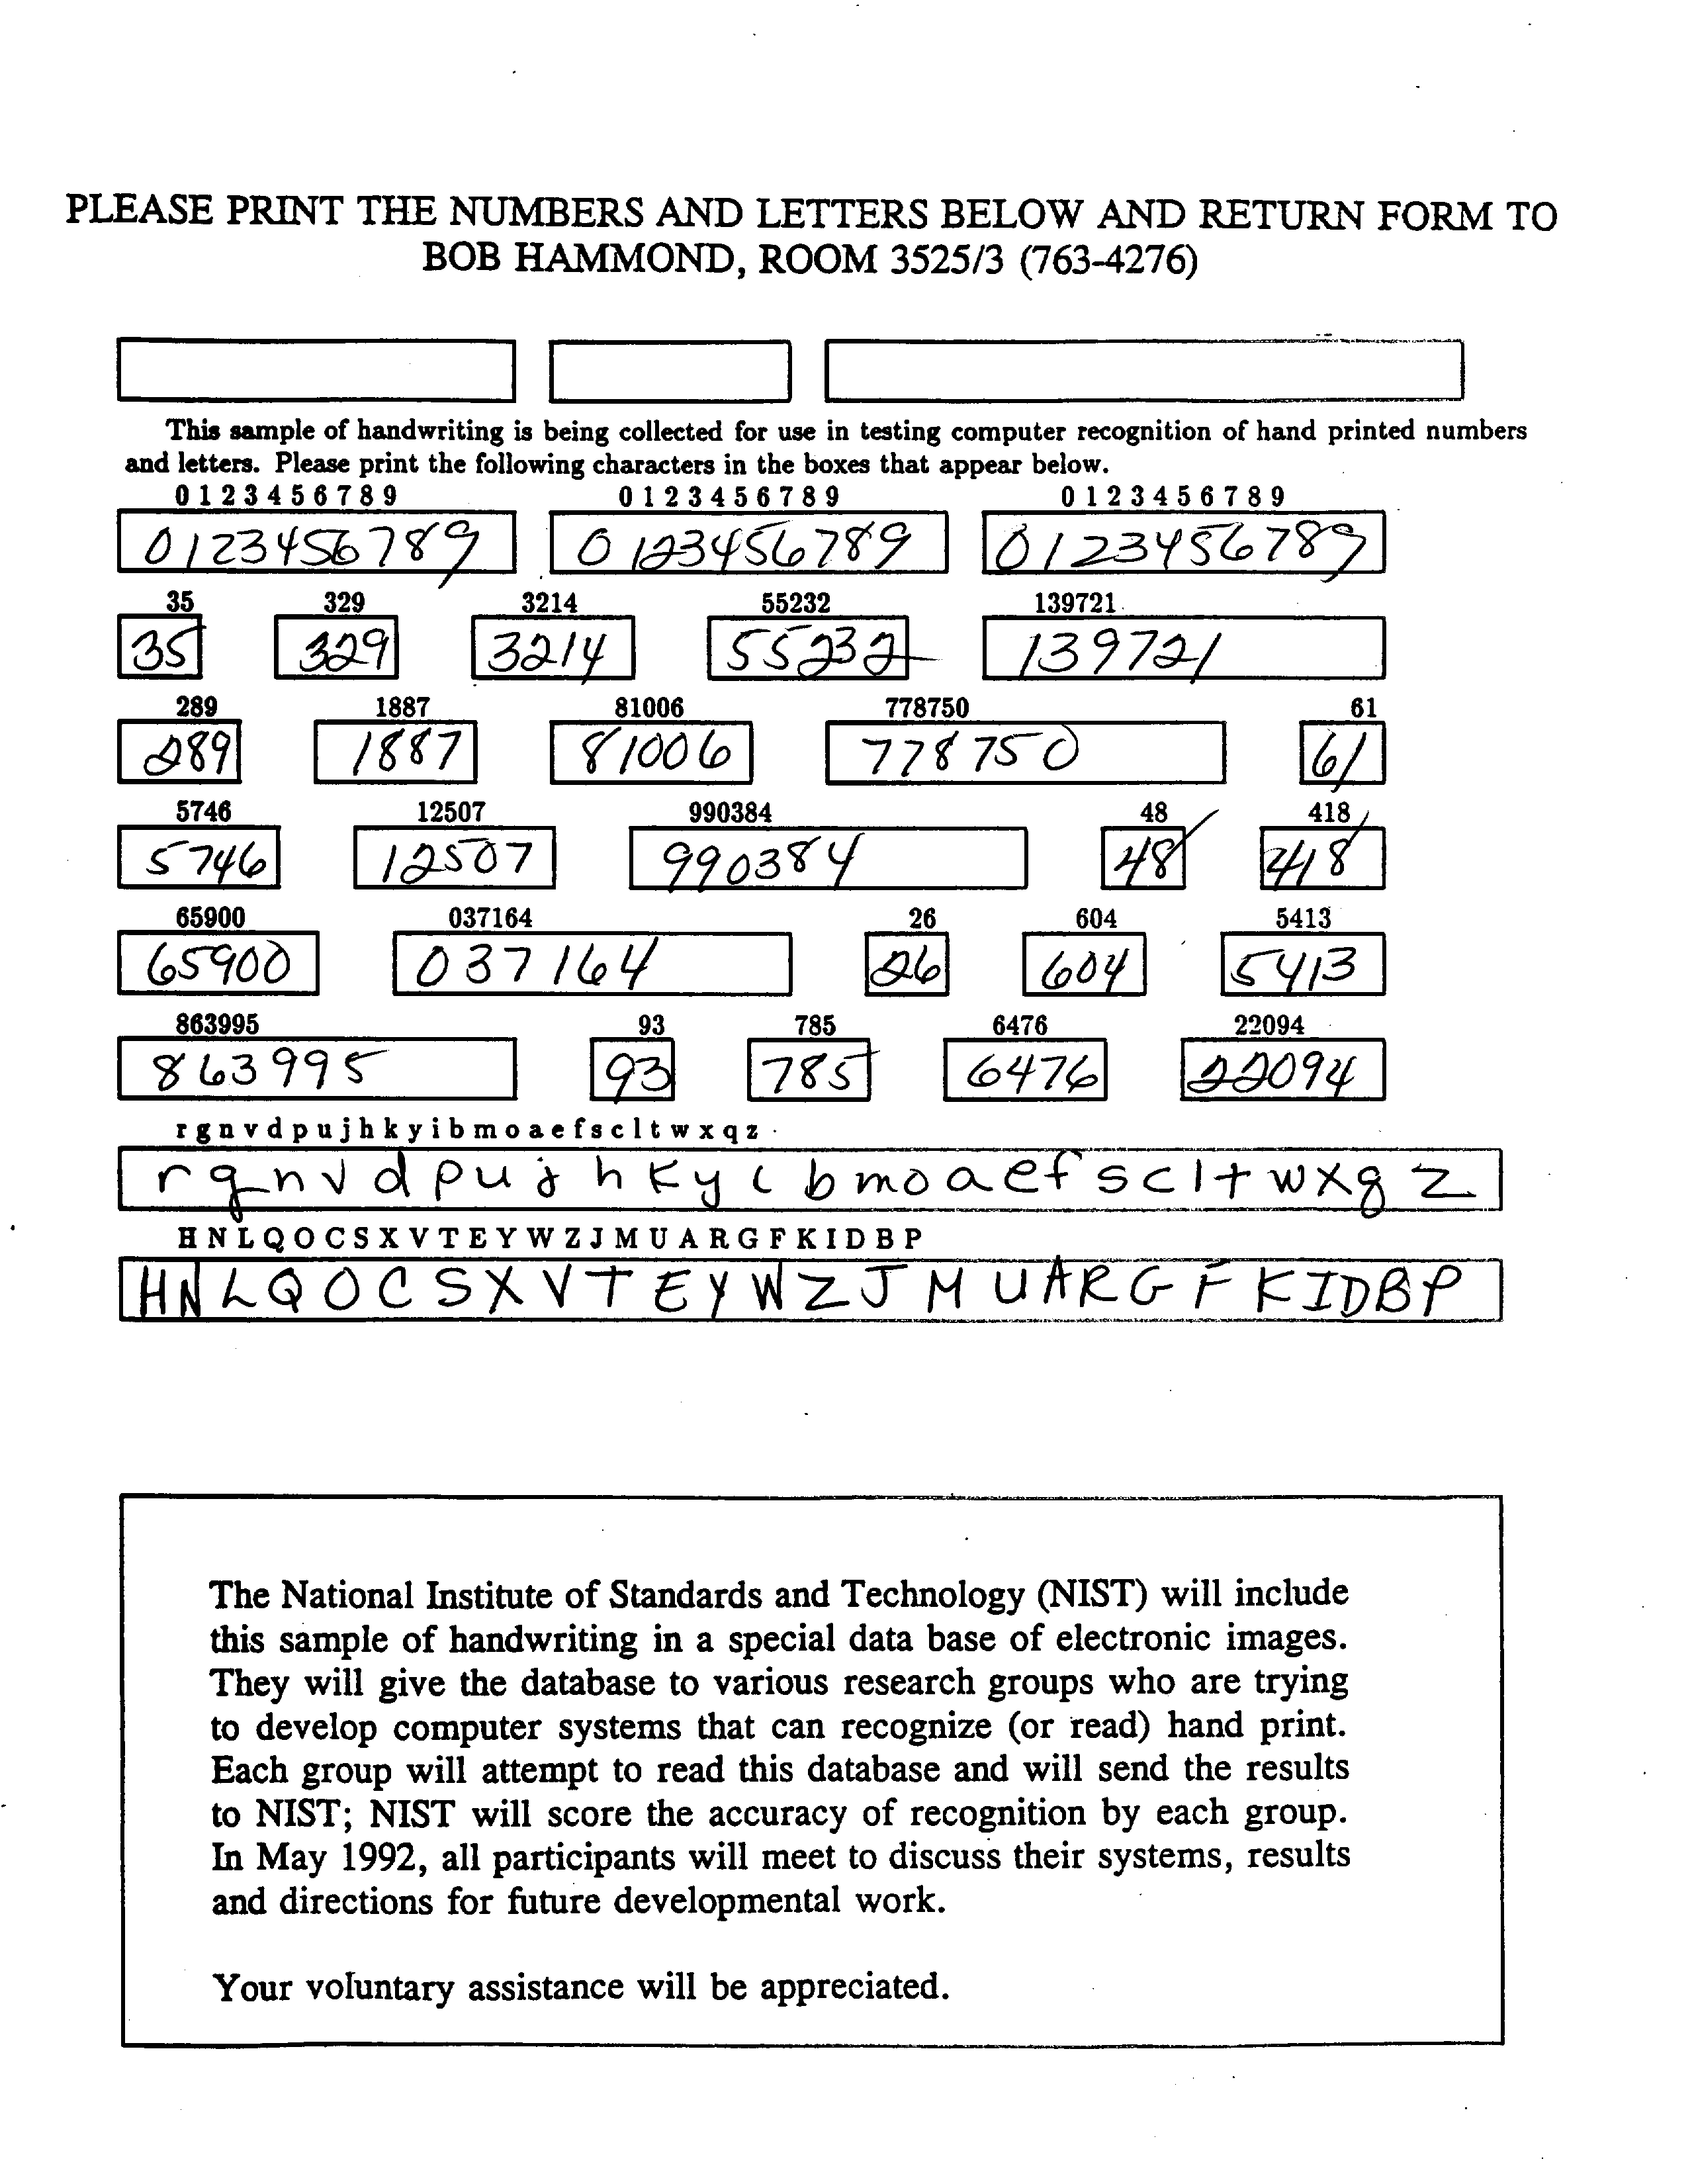 PLEASE PRINT THE NUMBERS AND LETTERS BELOW AND RETURN FORM TO
BOB HAMMOND, ROOM 3525/3 (763-4276)
This sample of handwriting is being collected for use in testing computer recognition of hand printed numbers
and letters. Please print the following characters in the boxes that appear below.
0 1 2 3 4 5 6 7 8 9 0 1 2 3 4 5 6 7 8 9 0 1 2 3 4 5 6 7 8 9
0123456789 0123456789 0123456789
35 329 3214 55232 139721
35 329 3214 55232 139721
289 1887 81006 778750 61
289 1887 81006 778750 61
5746 12507 990384 48 418
5746 12507 990384 48 418
65900 037164 26 604 5413
65900 037164 26 604 5413
863995 93 785 6476 22094
863995 93 785 6476 22094
r g n v d p u j h k y i b m o a e f s c l t w x q z
r g n v d p u j h k y i b m o a e f s c l t w x q z
H N L Q O C S X V T E Y W Z J M U A R G F K I D B P
H N L Q O C S X V T E Y W Z J M U A R G F K I D B P
The National Institute of Standards and Technology (NIST) will include
this sample of handwriting in a special data base of electronic images.
They will give the database to various research groups who are trying
to develop computer systems that can recognize (or read) hand print.
Each group will attempt to read this database and will send the results
to NIST; NIST will score the accuracy of recognition by each group.
In May 1992, all participants will meet to discuss their systems, results
and directions for future developmental work.
Your voluntary assistance will be appreciated.